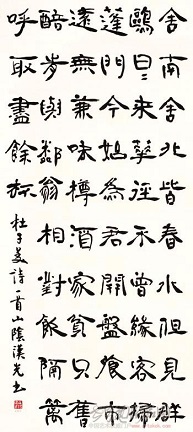 舍南舍北皆春水但見群
鷗日〻來華徑不曾緣客掃
蓬門今始為君開盤飧市
遠無兼味樽酒家貧只舊
醅肯與鄰翁相對飲隔籬
呼取盡餘杯
杜子美詩一首山陰光书